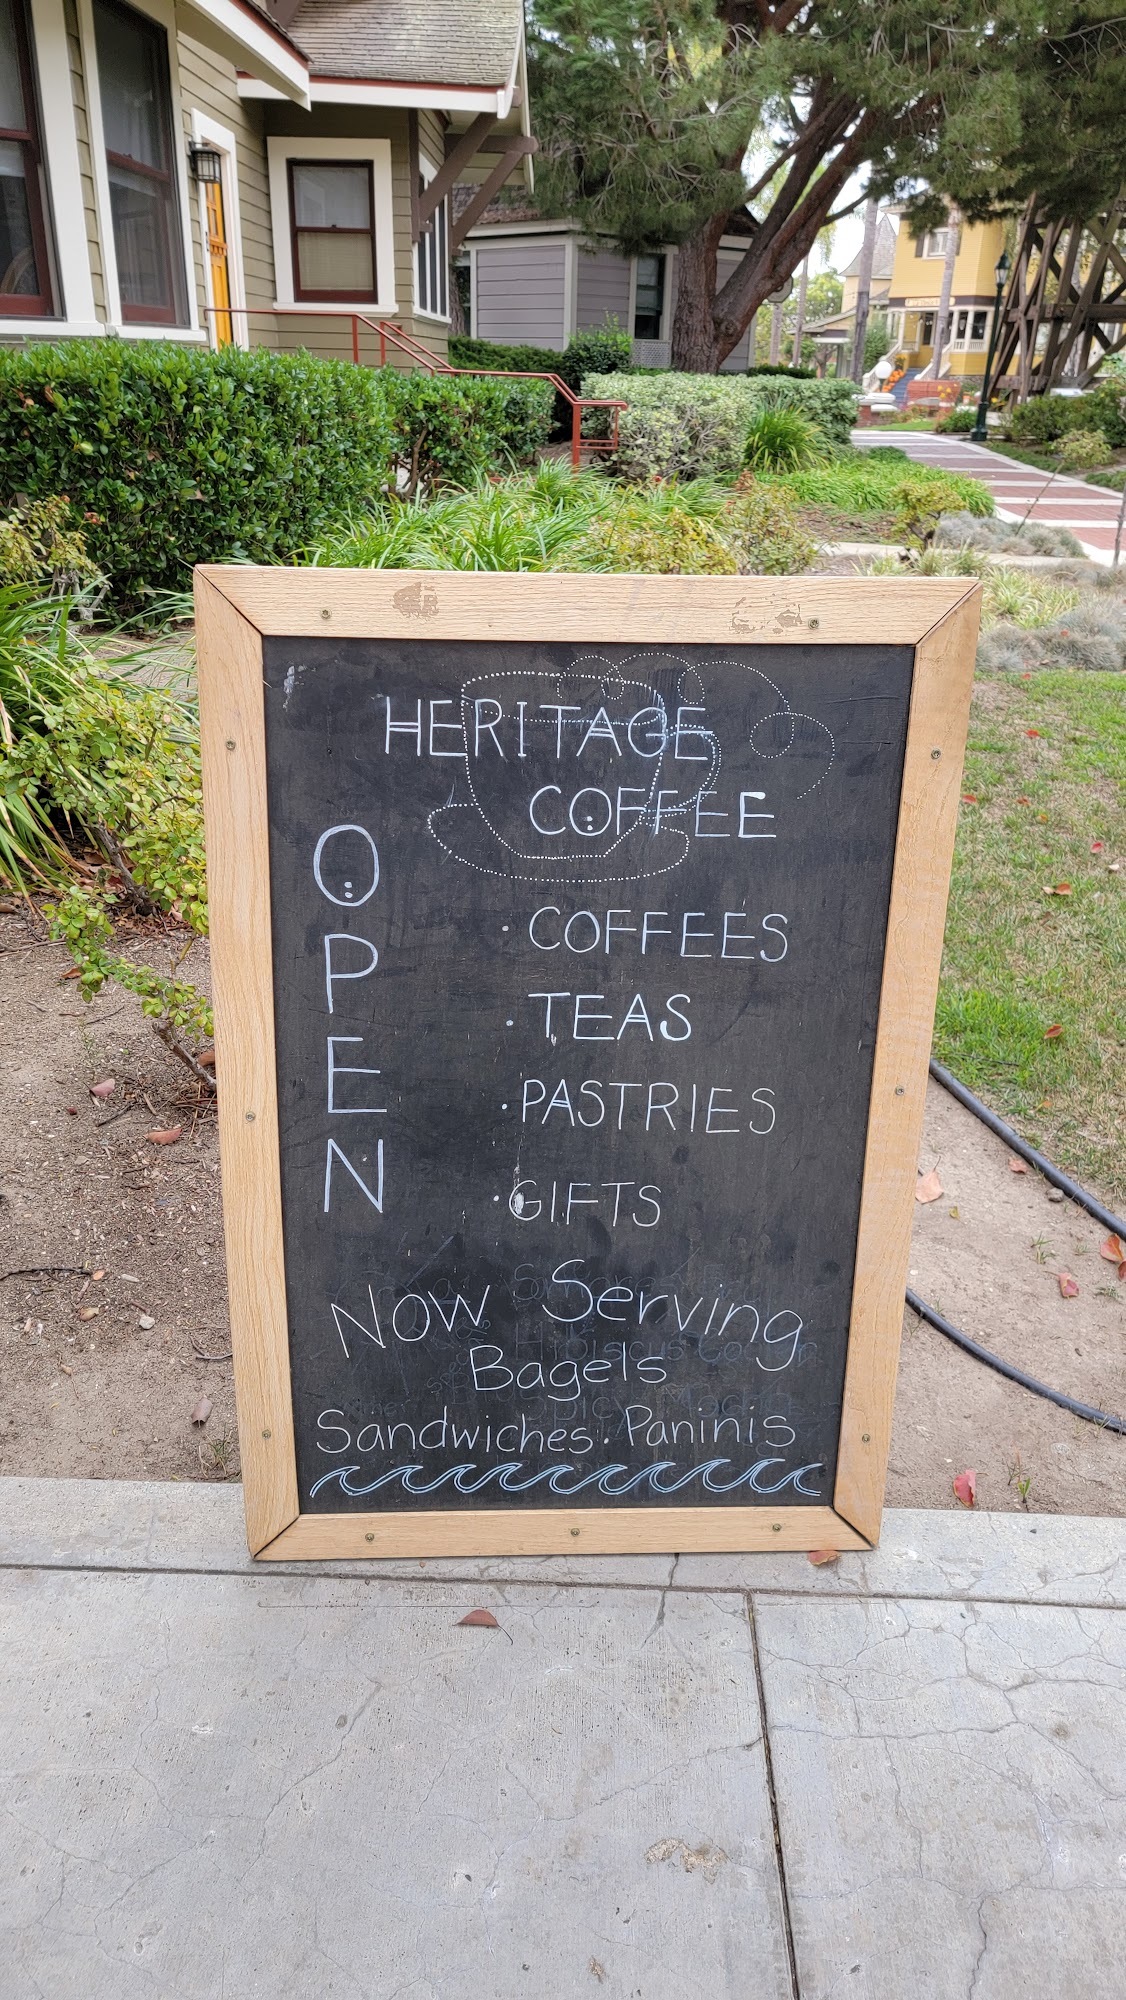 HERITAGE
COFFEE
OPEN
· COFFEES
· TEAS
· PASTRIES
· GIFTS
Now Serving
Bagels
Sandwiches · Paninis